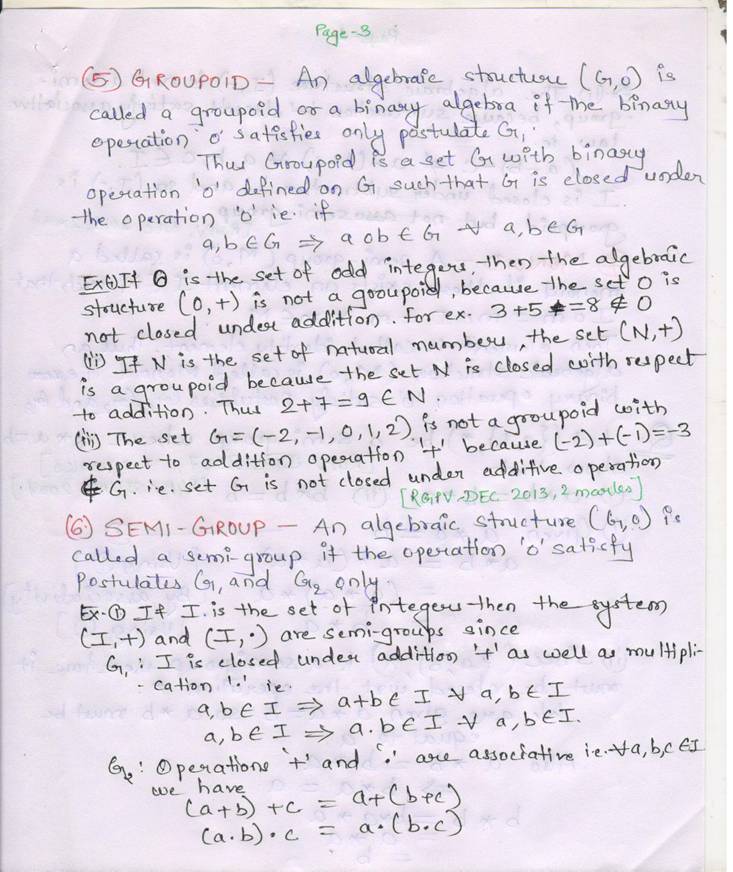 Page-3
(5) GROUPOID - An algebraic structure (G,o) is
called a groupoid or a binary algebra if the binary
operation 'o' satisfies only postulate G1.
Thus Groupoid is a set G with binary
operation 'o' defined on G such that, G is closed under
the operation 'o' i.e. if
a,b ∈ G ⇒ a o b ∈ G ∀ a,b ∈ G
Ex(i) If O is the set of odd integers, then the algebraic
structure (O,+) is not a groupoid, because the set O is
not closed under addition. For ex. 3+5 = 8 ∉ O
(ii) If N is the set of natural numbers, the set (N,+)
is a groupoid because the set N is closed with respect
to addition. Thus 2+7=9 ∈ N.
(iii) The set G=(-2,-1,0,1,2) is not a groupoid with
respect to addition operation '+' because (-2)+(-1)=-3
∉ G. i.e set G is not closed under additive operation
[RGPV-DEC 2013, 2 marks]
(6) SEMI-GROUP - An algebraic structure (G,o) is
called a semi group if the operation 'o' satisfy
Postulates G1 and G2 only.
Ex. (1) If I is the set of integers then the system
(I,+) and (I,·) are semi-groups since
G1 : I is closed under addition '+' as well as multipli-
-cation '·' ie.
a,b ∈ I ⇒ a+b ∈ I ∀ a,b ∈ I
a,b ∈ I ⇒ a·b ∈ I ∀ a,b ∈ I.
G2 : Operations '+' and '·' are associative i.e. ∀ a,b,c ∈ I
we have
(a+b)+c = a+(b+c)
(a·b)·c = a·(b·c)